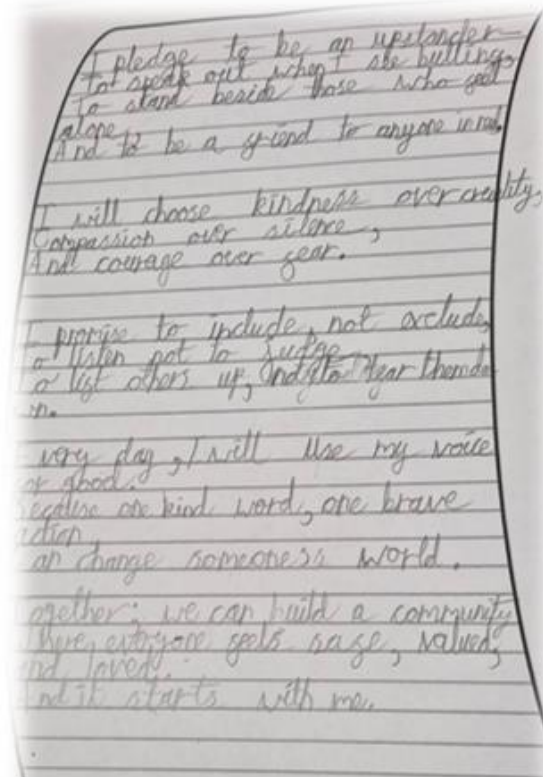 I pledge to be an upstander
To speak out when I see bulling,
To stand beside those who feel
alone,
And to be a friend to anyone in need.
I will choose kindness over cruelity,
Compassion over silence,
And courage over fear.
I promise to include, not exclude,
To listen not to judge
To lift others up, not to tear them do
n.
very day, I will use my voice
or good.
ecause one kind word, one brave
action,
an change someoness world.
ogether; we can build a community
here, everyone feels safe, valued,
nd loved.
nd it starts with me.